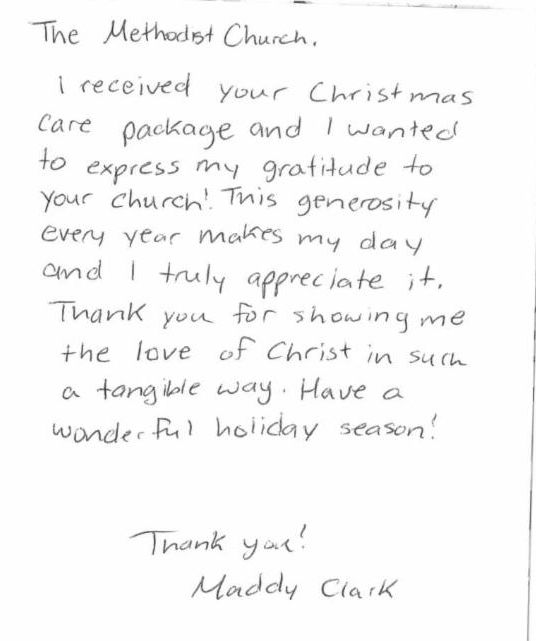 The Methodist Church,
I received your Christmas
Care package and I wanted
to express my gratitude to
your church! This generosity
every year makes my day
and I truly appreciate it.
Thank you for showing me
the love of Christ in such
a tangible way. Have a
wonderful holiday season!
Thank you!
Maddy Clark